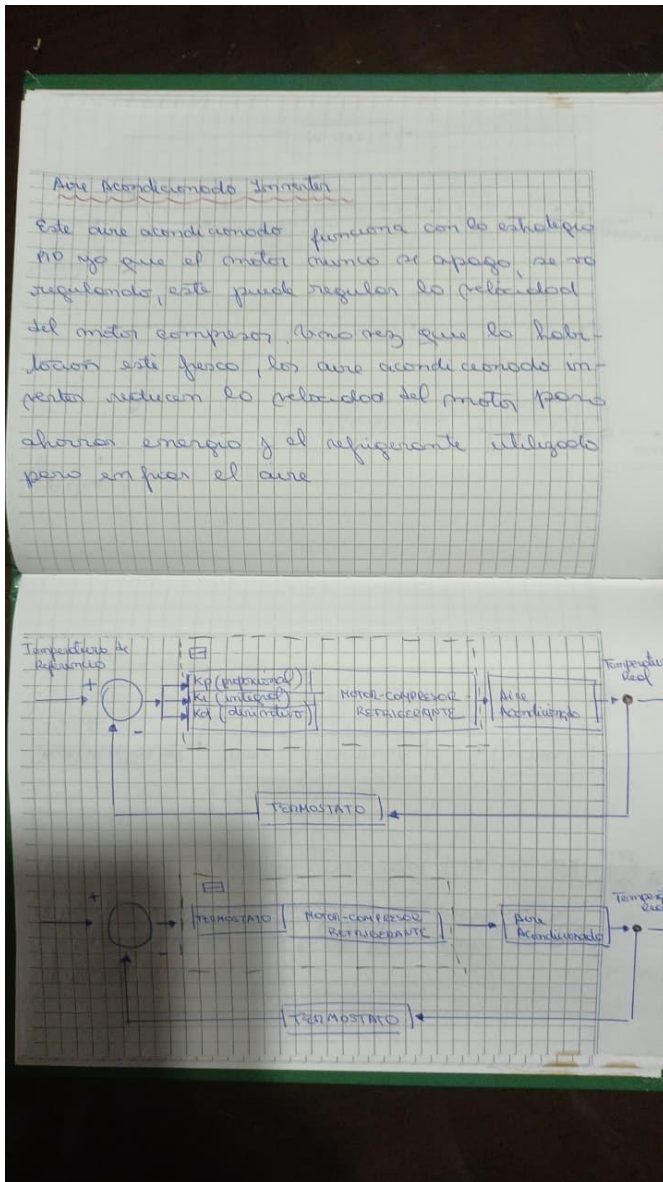 Aire Acondicionado Inverter
Este aire acondicionado funciona con la estrategia
PID ya que el motor nunca se apaga, se va
regulando, este puede regular la velocidad
del motor compresor. Una vez que la habi-
tacion este fresca, los aire acondicionado in-
verter reducen la velocidad del motor para
ahorrar energia y el refrigerante utilizado
para enfriar el aire
Temperatura de
Referencia
+
-
Kp (proporcional)
Ki (integral)
Kd (derivativo)
MOTOR-COMPRESOR
REFRIGERANTE
Aire
Acondicionado
Temperatura
Real
TERMOSTATO
+
-
TERMOSTATO
MOTOR-COMPRESOR
REFRIGERANTE
Aire
Acondicionado
Real
TERMOSTATO